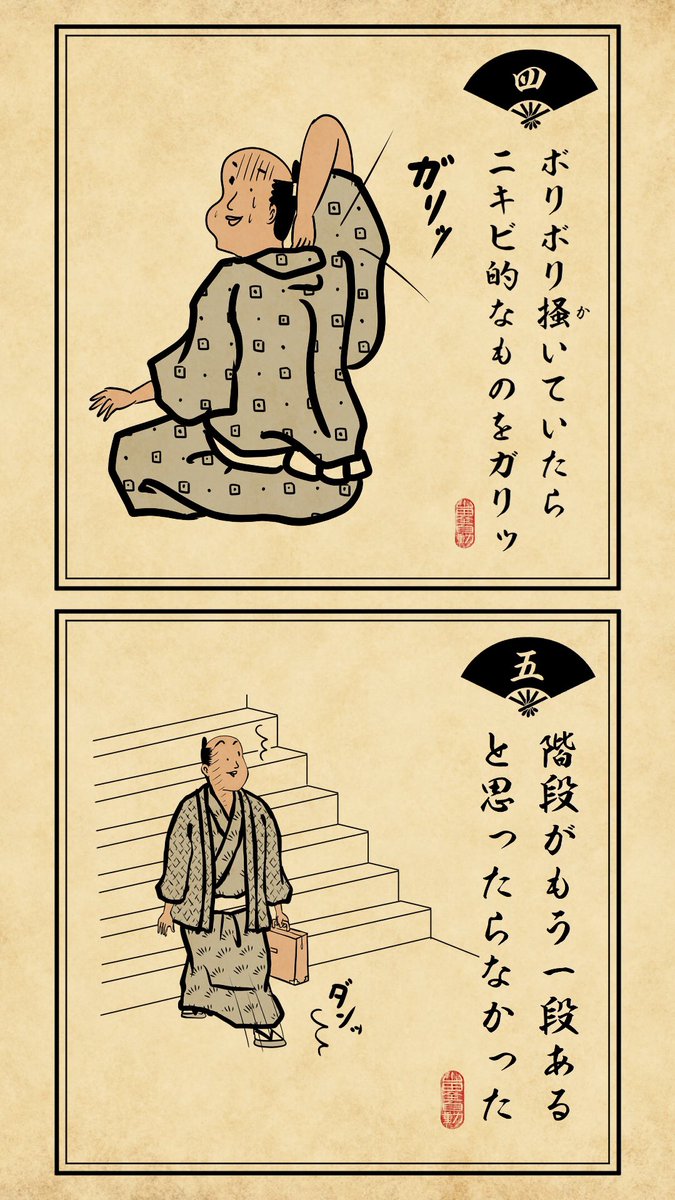 四
ボリボリ掻いていたら
か
ニキビ的なものをガリッ
ガリッ
五
階段がもう一段ある
と思ったらなかった
ダンッ